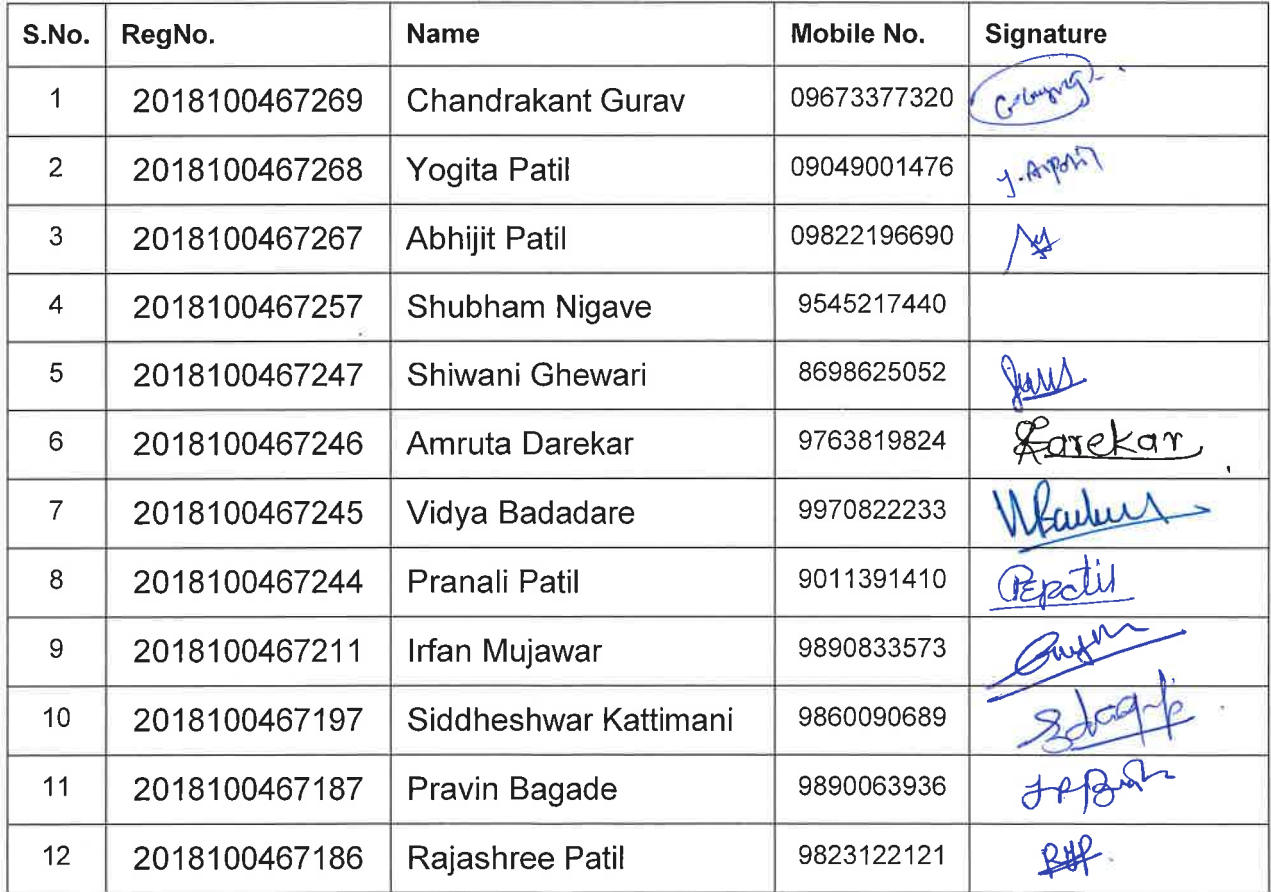 S.No. RegNo. Name Mobile No. Signature
1 2018100467269 Chandrakant Gurav 09673377320
2 2018100467268 Yogita Patil 09049001476
3 2018100467267 Abhijit Patil 09822196690
4 2018100467257 Shubham Nigave 9545217440
5 2018100467247 Shiwani Ghewari 8698625052
6 2018100467246 Amruta Darekar 9763819824 Darekar
7 2018100467245 Vidya Badadare 9970822233
8 2018100467244 Pranali Patil 9011391410 PEPatil
9 2018100467211 Irfan Mujawar 9890833573
10 2018100467197 Siddheshwar Kattimani 9860090689
11 2018100467187 Pravin Bagade 9890063936
12 2018100467186 Rajashree Patil 9823122121